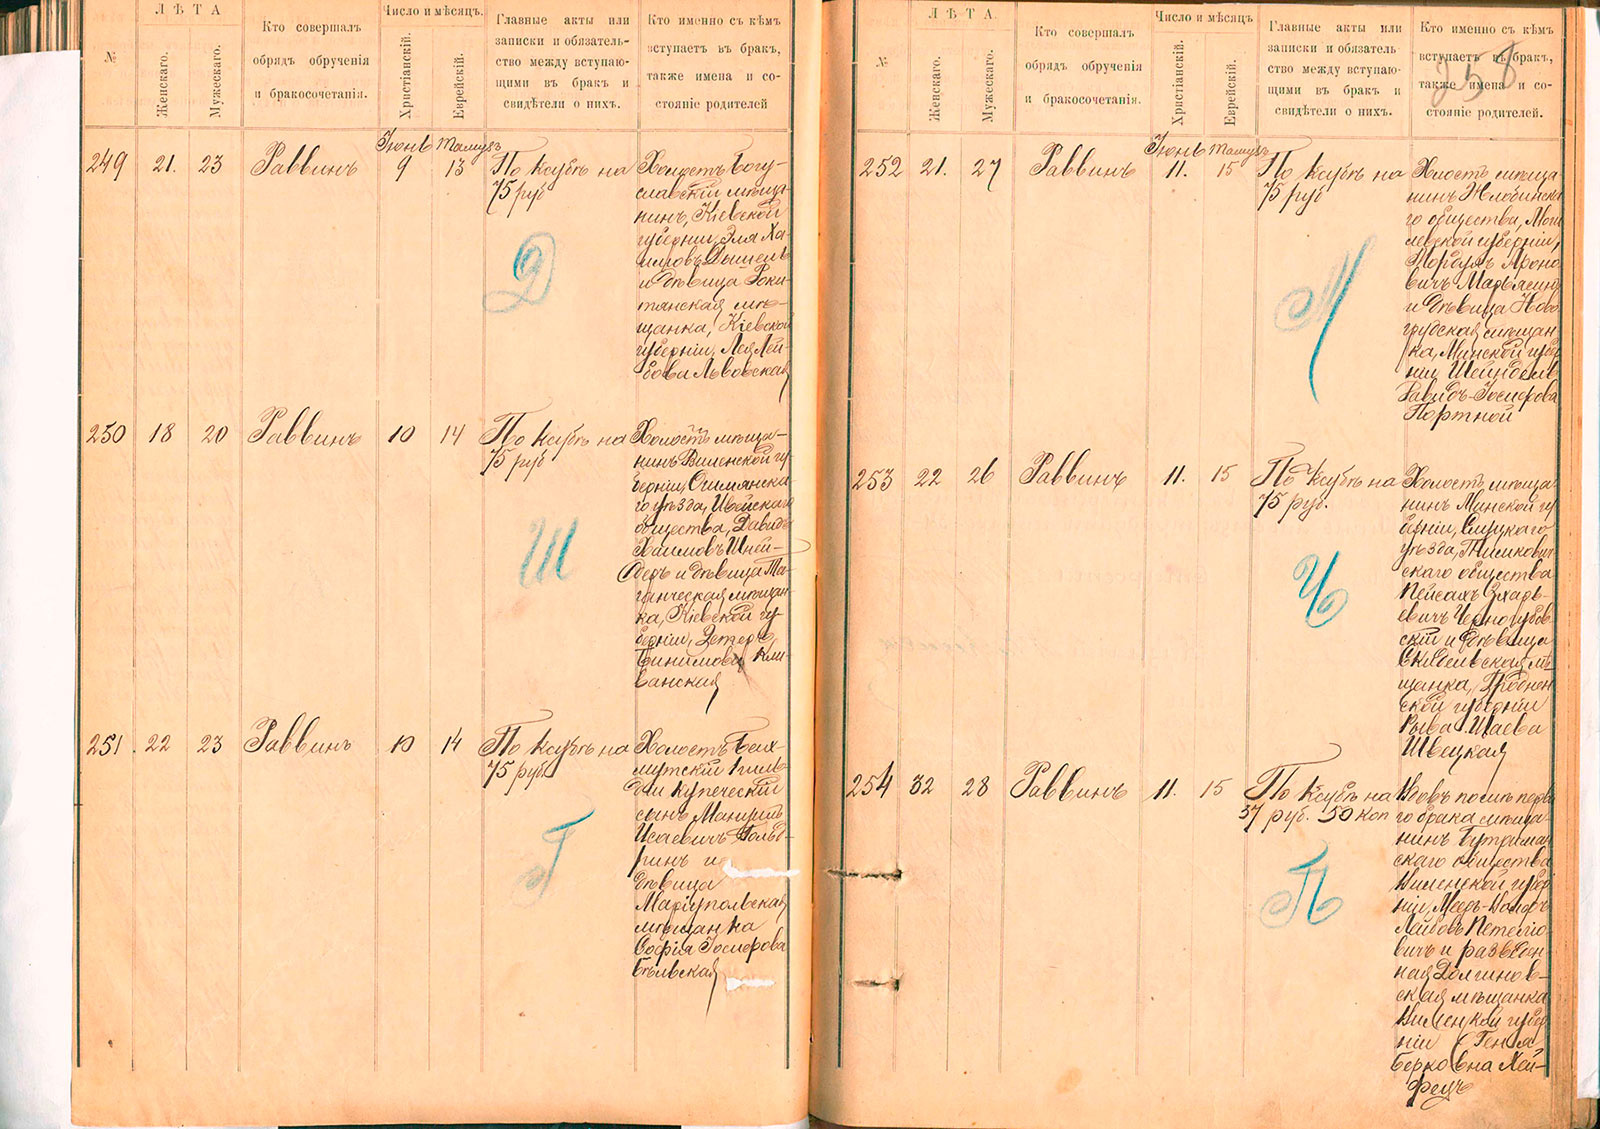 ЛѢТА
№
Женскаго.
Мужескаго.
Кто совершалъ
обрядъ обрученія
и бракосочетанія.
Число и мѣсяцъ.
Христіанскій.
Еврейскій.
Главные акты или
записки и обязатель-
ство между вступаю-
щими въ бракъ и
свидѣтели о нихъ.
Кто именно съ кѣмъ
вступаетъ въ бракъ,
также имена и со-
стояніе родителей
Іюнь Тамузъ
249 21. 23 Раввинъ 9 13 По ксубѣ на
75 руб
Холостъ Богу-
славскій мѣща-
нинъ, Кіевской
губерніи, Эля Ха-
имовъ Дышель
и дѣвица Роки-
тянская мѣ-
щанка, Кіевской
губерніи, Лея Лей-
бова Львовская
Д
250 18 20 Раввинъ 10 14 По ксубѣ на
75 руб
Холостъ мѣща-
нинъ Виленской гу-
берніи, Ошмянска-
го уѣзда, Ивейскаго
общества, Давидъ
Хаимовъ Шней-
деръ и дѣвица Та-
ганческая мѣщан-
ка, Кіевской гу-
берніи, Эстеръ
Бинимова Кли-
ванская
Ш
251. 22 23 Раввинъ 10 14 По ксубѣ на
75 руб.
Холостъ Бах-
мутскій 1 гиль-
діи купеческій
сынъ
Исаевичъ Гольд-
ринъ и
дѣвица
Маріупольская
мѣщанка
Софія Іосифова
Бѣльская
Г
ЛѢТА.
№
Женскаго.
Мужескаго.
Кто совершалъ
обрядъ обрученія
и бракосочетанія.
Число и мѣсяцъ
Христіанскій.
Еврейскій.
Главные акты или
записки и обязатель-
ство между вступаю-
щими въ бракъ и
свидѣтели о нихъ.
Кто именно съ кѣмъ
вступаетъ въ бракъ,
также имена и со-
стояніе родителей.
258
Іюнь Тамузъ
252 21. 27 Раввинъ 11. 15 По ксубѣ на
75 руб
Холостъ мѣща
нинъ Жлобинска
го общества, Моги
левской губерніи,
Мордухъ Ароно
вичъ Марьясинъ
и дѣвица Ново
грудская мѣщан-
ка, Минской губер
ніи Шейндель
Давидъ-Іосифова
Портной
М
253 22 26 Раввинъ 11. 15 По ксубѣ на
75 руб.
Холостъ мѣща
нинъ Минской гу
берніи, Слуцкаго
уѣзда, Тимкович
скаго общества
Пейсахъ Эхарь-
евичъ Черногубов-
скій и дѣвица
Скидельская мѣ
щанка, Гроднен
ской губерніи
Рыва Шаева
Швецкая
Ч
254 32 28 Раввинъ 11. 15 По ксубѣ на
37 руб. 50 коп
Вдовъ послѣ перва
го брака мѣща
нинъ Бутриман
скаго общества
Виленской губер
ніи,
Лейбовъ
вичъ и разведен-
ная Долгинов-
ская мѣщанка
Виленской губер
ніи Геня
Берковна Хей-
фецъ
П